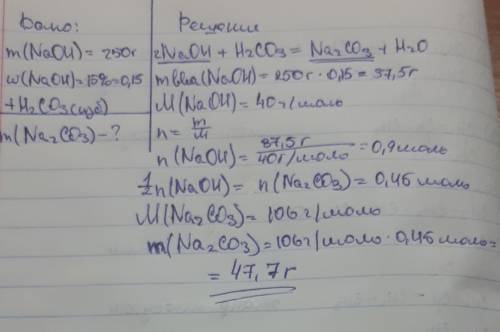 Дано:
m(NaOH)=250г
w(NaOH)=15%=0,15
+H₂CO₃(изб)
m(Na₂CO₃)-?
Решение
2NaOH + H₂CO₃ = Na₂CO₃ + H₂O
m в-ва(NaOH)=250г·0,15=37,5г
M(NaOH)=40г/моль
n=m/M
n(NaOH)=37,5г/40г/моль=0,9моль
1/2n(NaOH)=n(Na₂CO₃)=0,45моль
M(Na₂CO₃)=106г/моль
m(Na₂CO₃)=106г/моль·0,45моль=
=47,7г